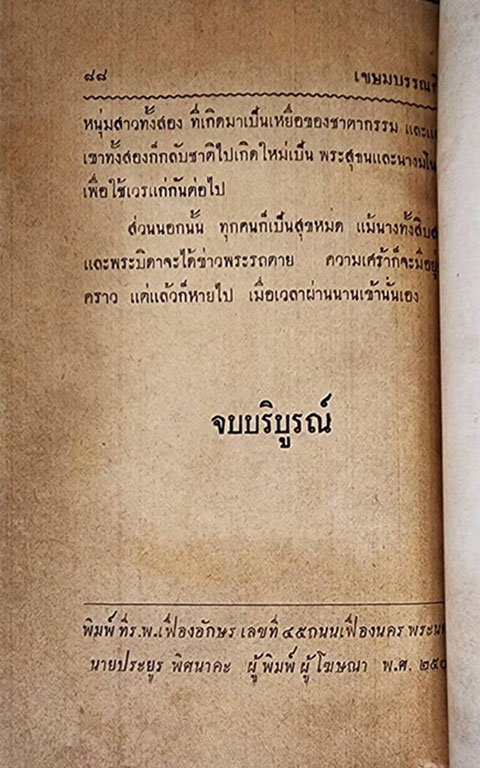 ๘๘ เขษมบรรณกิ
หนุ่มสาวทั้งสอง ที่เกิดมาเป็นเหยื่อของชาตากรรม และ
เขาทั้งสองก็กลับชาติไปเกิดใหม่เป็น พระสุธนและนางมโน
เพื่อใช้เวรแก่กันต่อไป
ส่วนนอกนั้น ทุกคนก็เป็นสุขหมด แม้นางทั้งสิบส
และพระบิดาจะได้ข่าวพระรถตาย ความเศร้าก็จะมีอยู่
คราว แต่แล้วก็หายไป เมื่อเวลาผ่านนานเข้านั่นเอง
จบบริบูรณ์
พิมพ์ ที่ร.พ.เฟื่องอักษร เลขที่ ๔๕ถนนเฟื่องนคร พระน
นายประยูร พิศนาคะ ผู้พิมพ์ ผู้โฆษณา พ.ศ. ๒๕๐